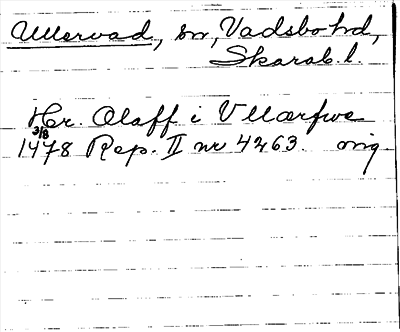 Ullervad, sn, Vadsbo hd,
Skarab. l.
Hr. Olaff i Vllærfwe
3/8
1478 Rep. II nr 4263. orig.